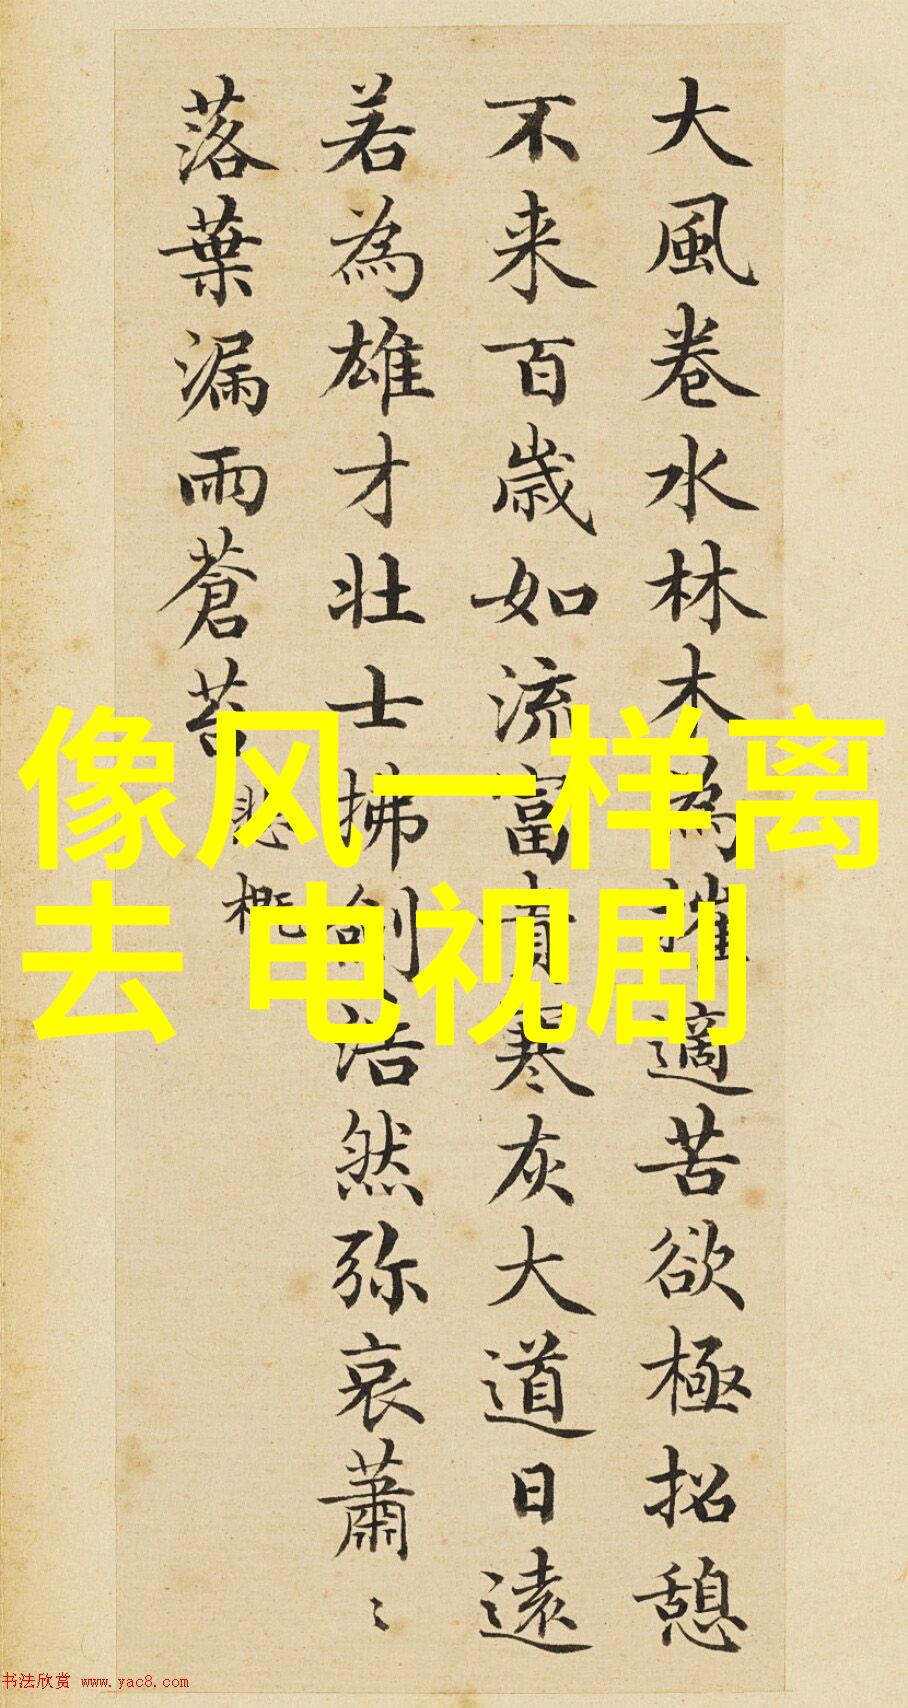 大風卷水林木為摧適苦欲極招憩
不来百歲如流富貴寒灰大道日遠
若為雄才壮士拂劍浩然弥哀蕭〻
落葉漏雨蒼苔 悲概
像风一样离
去 电视剧
书法欣赏 www.yac8.com